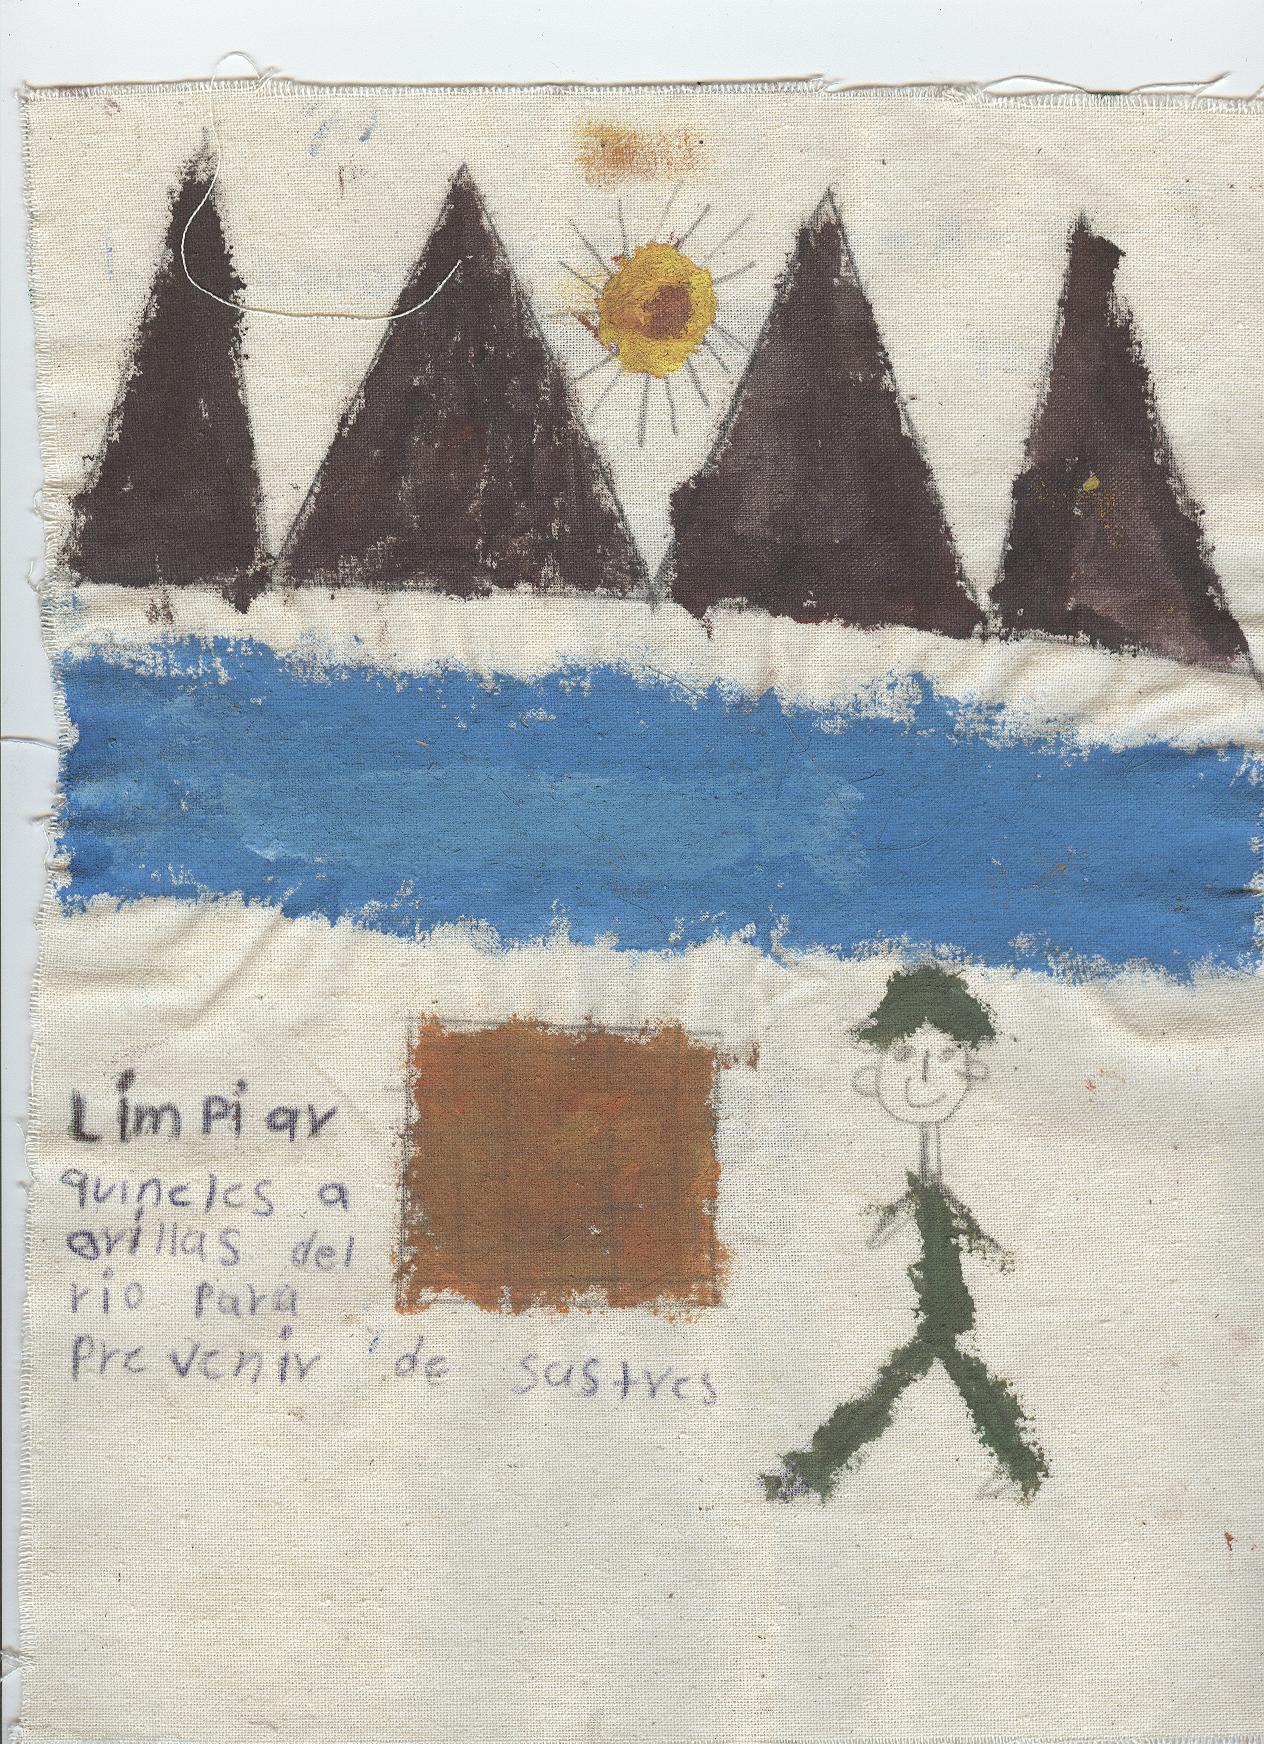 Limpiar
quineles a
orillas del
rio para
prevenir de sastres